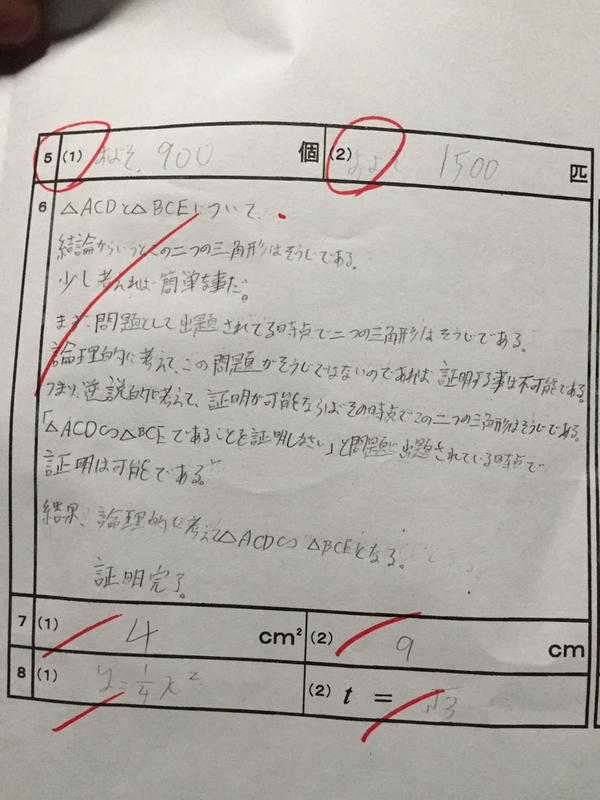 5 (1) およそ 900 個 (2) およそ 1500 匹
6 △ACDと△BCEについて、
結論からいうとこの二つの三角形はそうじである。
少し考えれば簡単な事だ。
まず、問題として出題されてる時点で二つの三角形はそうじである。
論理的に考えて、この問題がそうじではないのであれば、証明する事は不可能である。
つまり、逆説的に考えて、証明が可能ならばその時点でこの二つの三角形はそうじである。
「△ACD∽△BCEであることを証明しなさい」と問題に出題されている時点で
証明は可能である。
結果、論理的に考えて△ACD∽△BCEとなる。
証明完了。
7 (1) 4 cm² (2) 9 cm
8 (1) y=1/4x² (2) t = √3